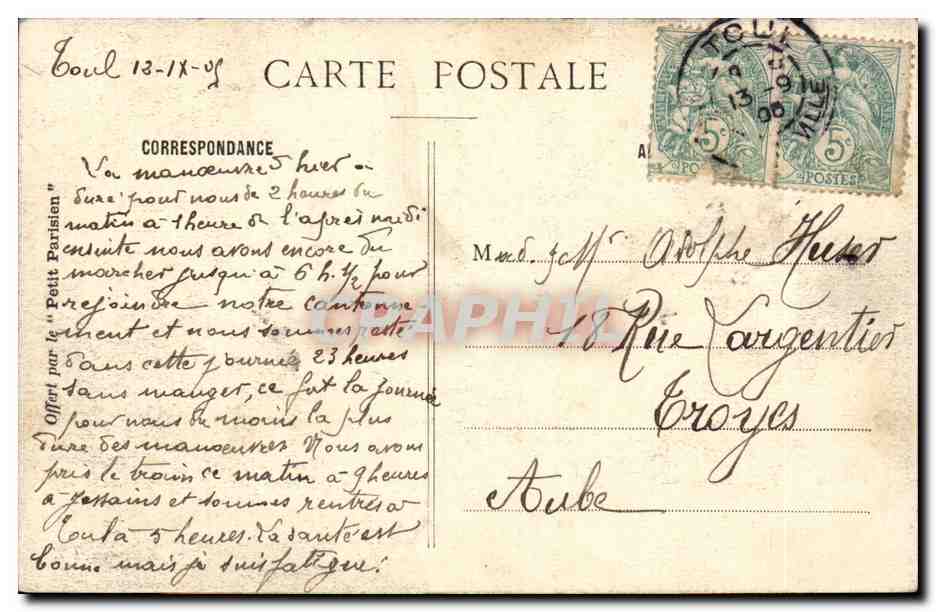 Toul 13-IX-05
CARTE POSTALE
TOUL
13-9
VILLE
5c
POSTES
5c
POSTES
CORRESPONDANCE
Offert par le "Petit Parisien"
La manœuvre d hier a
duré pour nous de 2 heures du
matin à 1 heure de l'après midi
ensuite nous avons encore du
marcher jusqu'à 6 h. 1/2 pour
rejoindre notre cantonne
ment et nous sommes resté
dans cette journée 23 heures
sans manger, ce fut la journée
pour nous du moins la plus
dure des manœuvres. Nous avons
pris le train ce matin à 9 heures
à Jessains et sommes rentrés à
Toul à 5 heures. La santé est
bonne mais je suis fatigué!
Mad. & Mr Adolphe Huser
18 Rue Largentier
Troyes
Aube
CPAPHIL